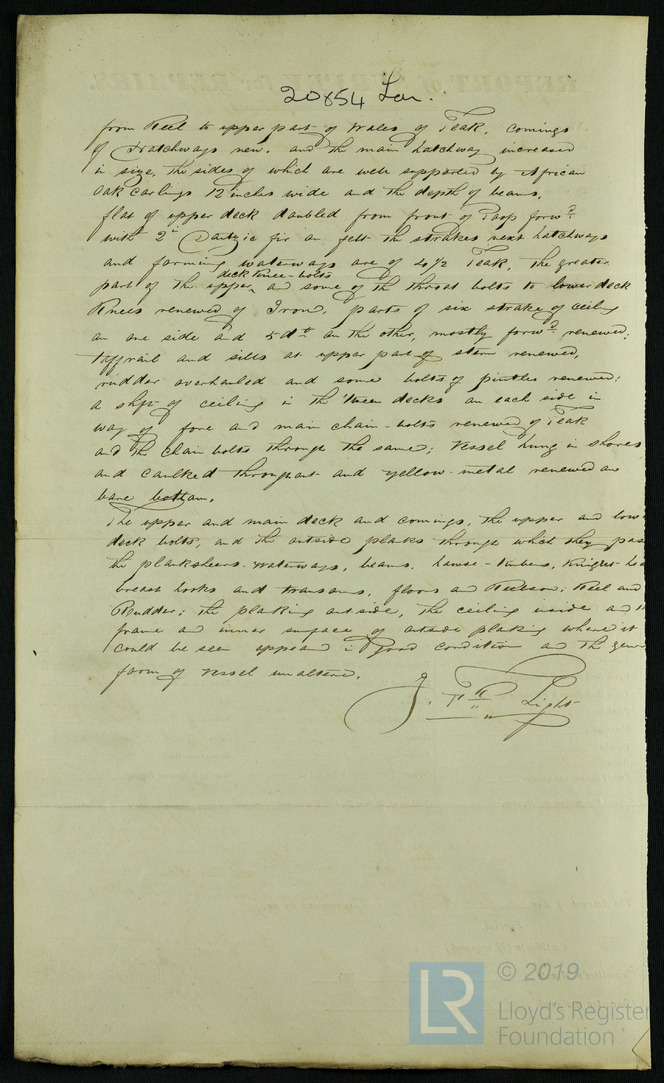 20854 Lon.
from Keel to upper part of Wales of Teak. Comings
of Hatchways new. and the main hatchway increased
in size, the sides of which are well supported by African
Oak Carlings 12 inches wide and the depth of beams.
flat of upper deck doubled from front of Poop forwd.
with 2" Dantzic fir on felt the strakes next hatchways
and forming waterways are of 4½ Teak, the greater
deck Knee-bolts
part of the upper, and some of the throat bolts to lower deck
Knees renewed of Iron. parts of six strakes of ceiling
on one side and 5 do on the other, mostly forwd. renewed;
taffrail and sills at upper part of stern renewed,
rudder overhauled and some bolts of pintles renewed;
a shift of ceiling in the 'tween decks on each side in
way of fore and main chain-bolts renewed of Teak
and the chain bolts through the same; Vessel hung in shores
and caulked throughout and yellow-metal renewed on
bare bottom.
The upper and main deck and comings, the upper and low
deck bolts, and the outside planks through which they pass
the planksheers waterways, beams, hawse-timbers, Knight-he
breast hooks and transoms, floors and Keelson; Keel and
Rudder; the planking outside, the ceiling inside and
frame and inner surface of outside planking where it
could be seen appeared in good condition and the gene
form of Vessel unaltered.
Light
© 2019
LR
Lloyd's Register
Foundation